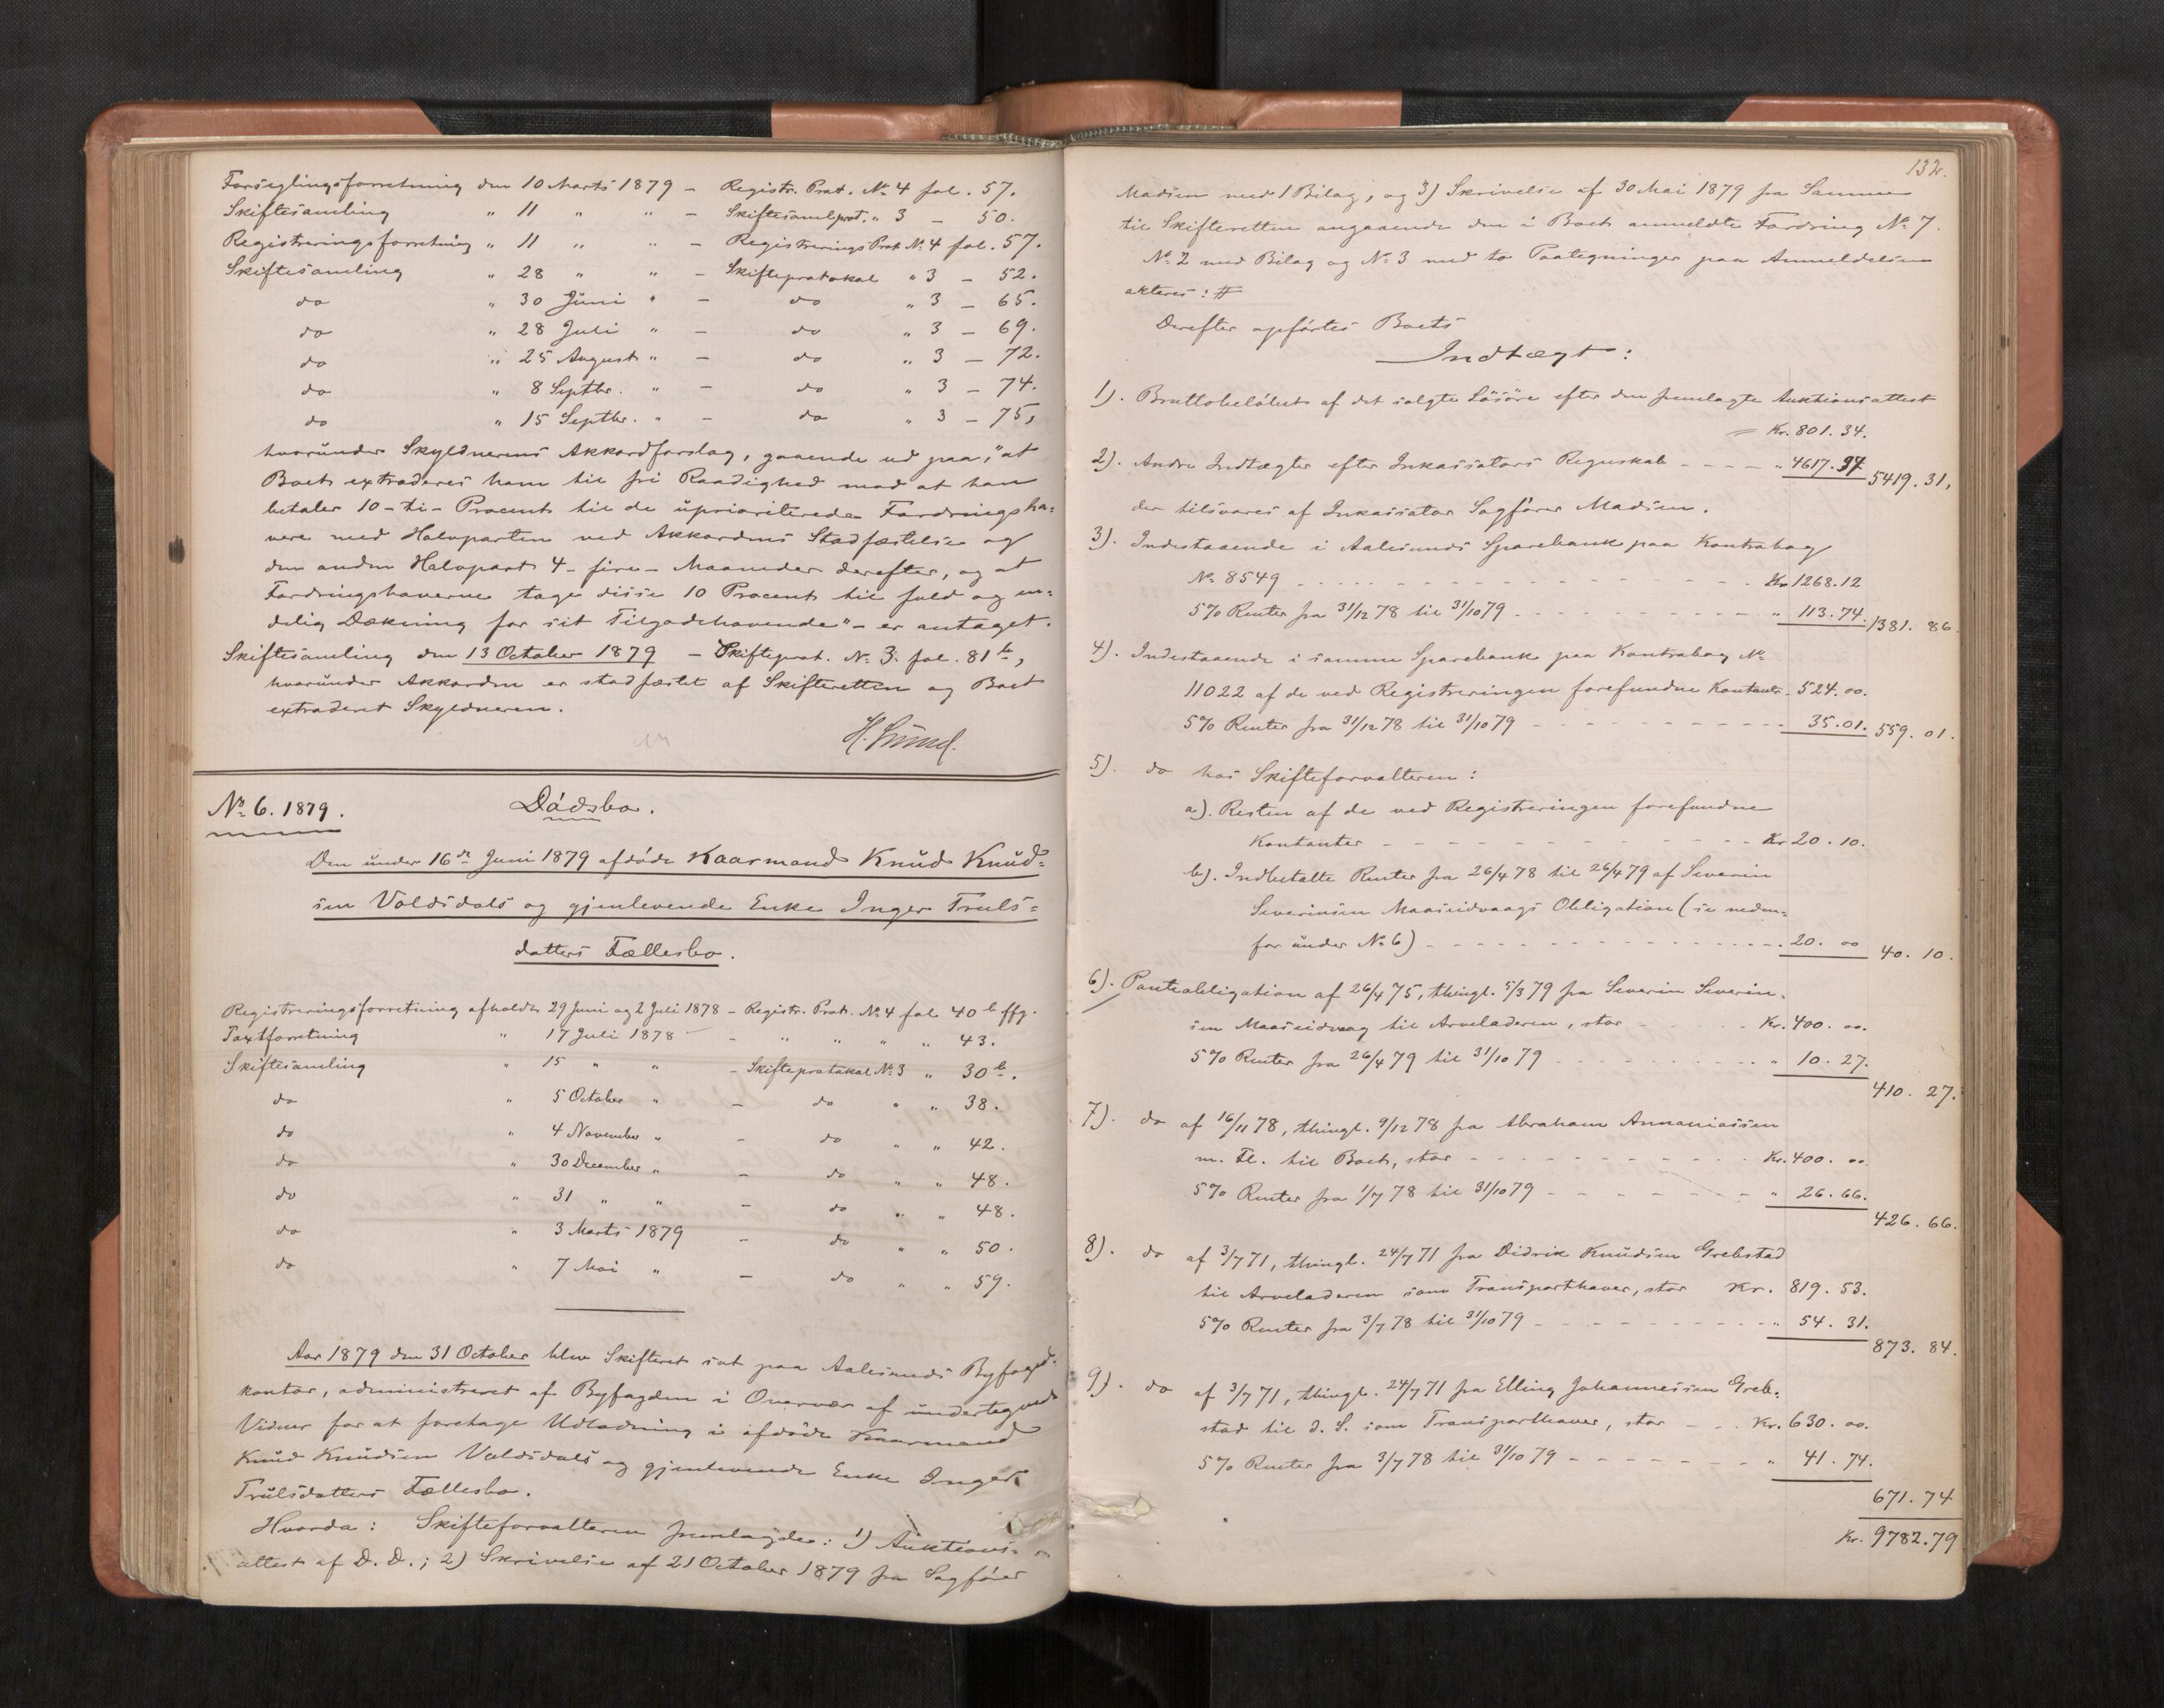 Forseglingsforretning den 10 Marts 1879 – Registr. Prot. No 4 fol. 57.
Skiftesamling " 11 " " – Skiftesamlprot. " 3 – 50.
Registreringsforretning " 11 " " – Registrerings Prot. No 4 fol. 57.
Skiftesamling " 28 " " – Skifteprotokol " 3 – 52.
do " 30 Juni " – do " 3 – 65.
do " 28 Juli " – do " 3 – 69.
do " 25 August " – do " 3 – 72.
do " 8 Septbr. " – do " 3 – 74.
do " 15 Septbr. " – do " 3 – 75,
hvorunder Skyldnerens Akkordforslag, gaaende ud paa, "at
Boet extraderes ham til fri Raadighed mod at han
betaler 10 – ti – Procent til de uprioriterede Fordringsha-
vere med Halvparten ved Akkordens Stadfæstelse og
den anden Halvpart 4 – fire – Maaneder derefter, og at
Fordringshaverne tage disse 10 Procent til fuld og en-
delig Dækning for sit Tilgodehavende" – er antaget.
Skiftesamling den 13 October 1879 – Skifteprot. No 3. fol. 81 b,
hvorunder Akkorden er stadfæstet af Skifteretten og Boet
extraderet Skyldneren.
No 6. 1879. Dødsbo.
Den under 16de Juni 1879 afdøde Kaarmand Knud Knud-
sen Valdsdals og gjenlevende Enke Inger Truls-
datters Fællesbo.
Registreringsforretning afholdt 29 Juni og 2 Juli 1878 – Registr. Prot. No 4 fol 40 b ffg.
Taxtforretning " 17 Juli 1878 – " " " " 43.
Skiftesamling " 15 " " – Skifteprotokol No 3 " 30 b.
do " 5 October " – do " " 38.
do " 4 November " – do " " 42.
do " 30 December " – do " " 48.
do " 31 " " – do " " 48.
do " 3 Marts 1879 – do " " 50.
do " 7 Mai " – do " " 59.
Aar 1879 den 31 October blev Skifteret sat paa Aalesunds Byfoged-
kontor, administreret af Byfogden i Overvær af undertegnede
Vidner for at foretage Udlodning i afdøde Kaarmand
Knud Knudsen Valdsdals og gjenlevende Enke Inger
Trulsdatters Fællesbo.
Hvorda: Skifteforvalteren fremlagde: 1) Auktions-
attest af D. D.; 2) Skrivelse af 21 October 1879 fra Sagfører
132.
Madsen med 1 Bilag, og 3) Skrivelse af 30 Mai 1879 fra Samme
til Skifteretten angaaende den i Boet anmeldte Fordring No 7.
No 2 med Bilag og No 3 med to Paategninger paa Anmeldelsen
akteres: #
Derefter opførtes Boets
Indtægt:
1). Bruttobeløbet af det solgte Løsøre efter den fremlagte Auktionsattest
= Kr. 801. 34.
2). Andre Indtægter efter Inkassators Regnskab – – – – " 4617. 97 5419. 31,
der tilsvares af Inkassator Sagfører Madsen.
3). Indestaaende i Aalesunds Sparebank paa Kontrabog
No 8549 – – – – Kr 1268. 12
5% Renter fra 31/12 78 til 31/10 79 – – – – " 113. 74. 1381. 86.
4). Indestaaende i samme Sparebank paa Kontrabog No
11022 af de ved Registreringen forefundne Kontanter – 524. 00.
5% Renter fra 31/12 78 til 31/10 79 – – – – 35. 01. 559. 01.
5). do hos Skifteforvalteren:
a). Resten af de ved Registreringen forefundne
Kontanter – – – – Kr 20. 10.
b). Indbetalte Renter fra 26/4 78 til 26/4 79 af Severin
Severinsen Maaseidvaags Obligation (se neden-
for under No 6) – – – – 20. 00 40. 10.
6). Panteobligation af 26/4 75, thingl. 5/3 79 fra Severin Severin-
sen Maaseidvaag til Arveladeren, stor – – Kr. 400. 00.
5% Renter fra 26/4 79 til 31/10 79 – – – – " 10. 27.
410. 27.
7). do af 16/11 78, thingl. 9/12 78 fra Abraham Annaniassen
m. Fl. til Boet, stor – – – – Kr. 400. 00.
5% Renter fra 1/7 78 til 31/10 79 – – – – " 26. 66.
426. 66.
8). do af 3/7 71, thingl. 24/7 71 fra Didrik Knudsen Grebstad
til Arveladeren som Transporthaver, stor Kr. 819. 53.
5% Renter fra 3/7 78 til 31/10 79 – – – – " 54. 31.
873. 84.
9). do af 3/7 71, thingl. 24/7 71 fra Elling Johannessen Greb-
stad til d. S. som Transporthaver, stor – – Kr. 630. 00.
5% Renter fra 3/7 78 til 31/10 79 – – – – " 41. 74.
671. 74
Kr. 9782. 79